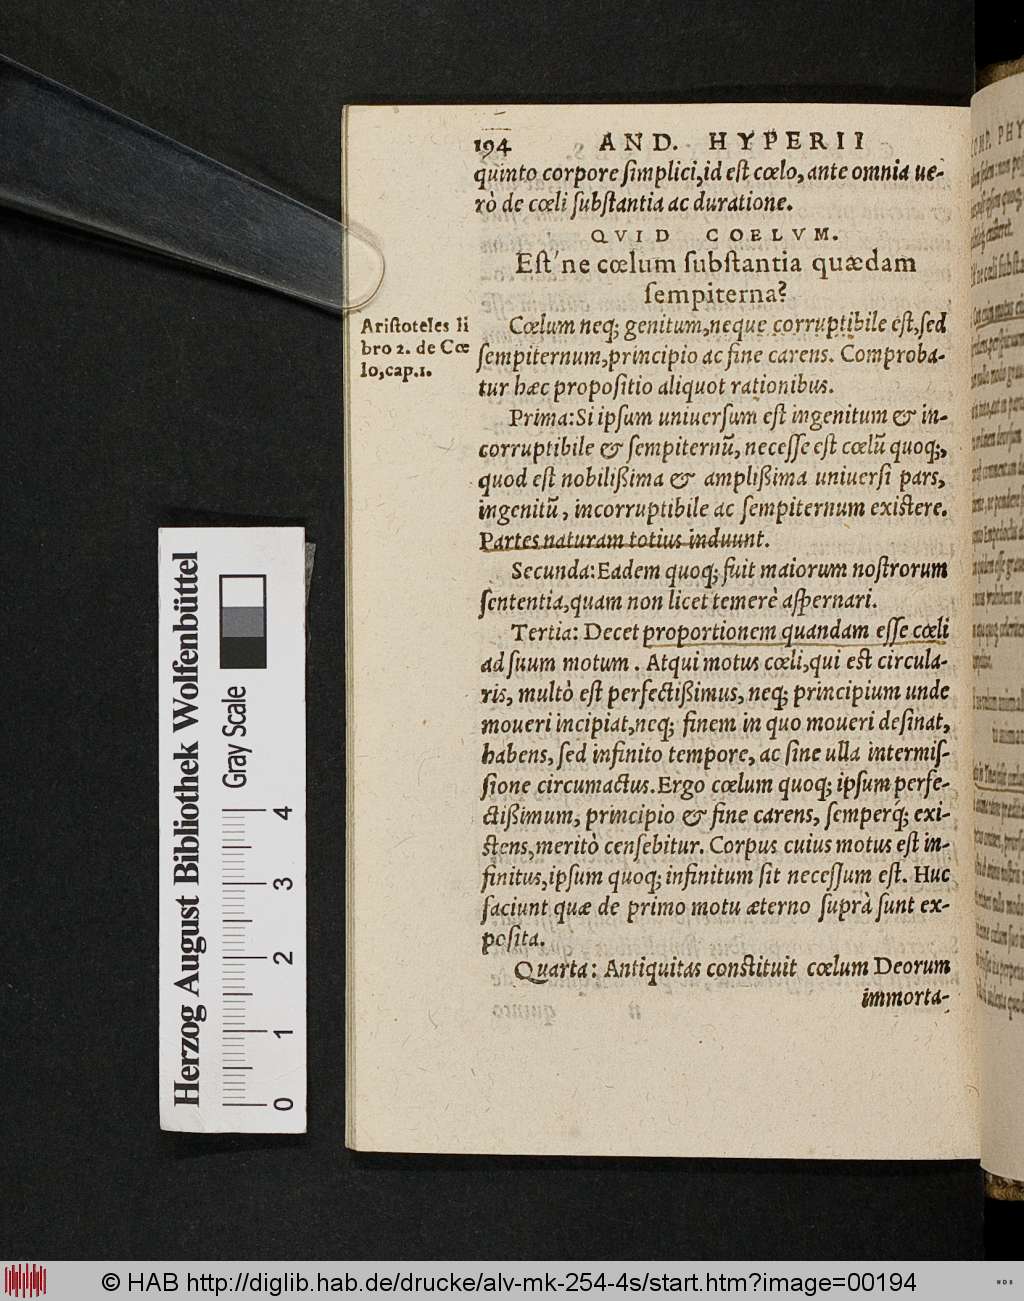 194 AND. HYPERII
quinto corpore ſimplici,id eſt cœlo, ante omnia ue-
rò de cœli ſubſtantia ac duratione.
QVID COELVM.
Eſt'ne cœlum ſubſtantia quædam
ſempiterna?
Ariſtoteles li
bro 2. de Cœ
lo,cap.1.
Cœlum neq; genitum,neque corruptibile eſt,ſed
ſempiternum,principio ac fine carens. Comproba-
tur hæc propoſitio aliquot rationibus.
Prima:Si ipſum uniuerſum eſt ingenitum & in-
corruptibile & ſempiternũ, neceſſe eſt cœlũ quoq;,
quod eſt nobilißima & amplißima uniuerſi pars,
ingenitũ, incorruptibile ac ſempiternum exiſtere.
Partes naturam totius induunt.
Secunda:Eadem quoq; fuit maiorum noſtrorum
ſententia,quam non licet temerè aſpernari.
Tertia: Decet proportionem quandam eſſe cœli
ad ſuum motum. Atqui motus cœli,qui eſt circula-
ris, multò eſt perfectißimus, neq; principium unde
moueri incipiat,neq; finem in quo moueri deſinat,
habens, ſed infinito tempore, ac ſine ulla intermiſ-
ſione circumactus.Ergo cœlum quoq; ipſum perfe-
ctißimum, principio & fine carens, ſemperq́; exi-
ſtens,meritò cenſebitur. Corpus cuius motus eſt in-
finitus,ipſum quoq; infinitum ſit neceſſum eſt. Huc
faciunt quæ de primo motu æterno ſuprà ſunt ex-
poſita.
Quarta: Antiquitas conſtituit cœlum Deorum
immorta-
Herzog August Bibliothek Wolfenbüttel
Gray Scale
0 1 2 3 4
© HAB http://diglib.hab.de/drucke/alv-mk-254-4s/start.htm?image=00194